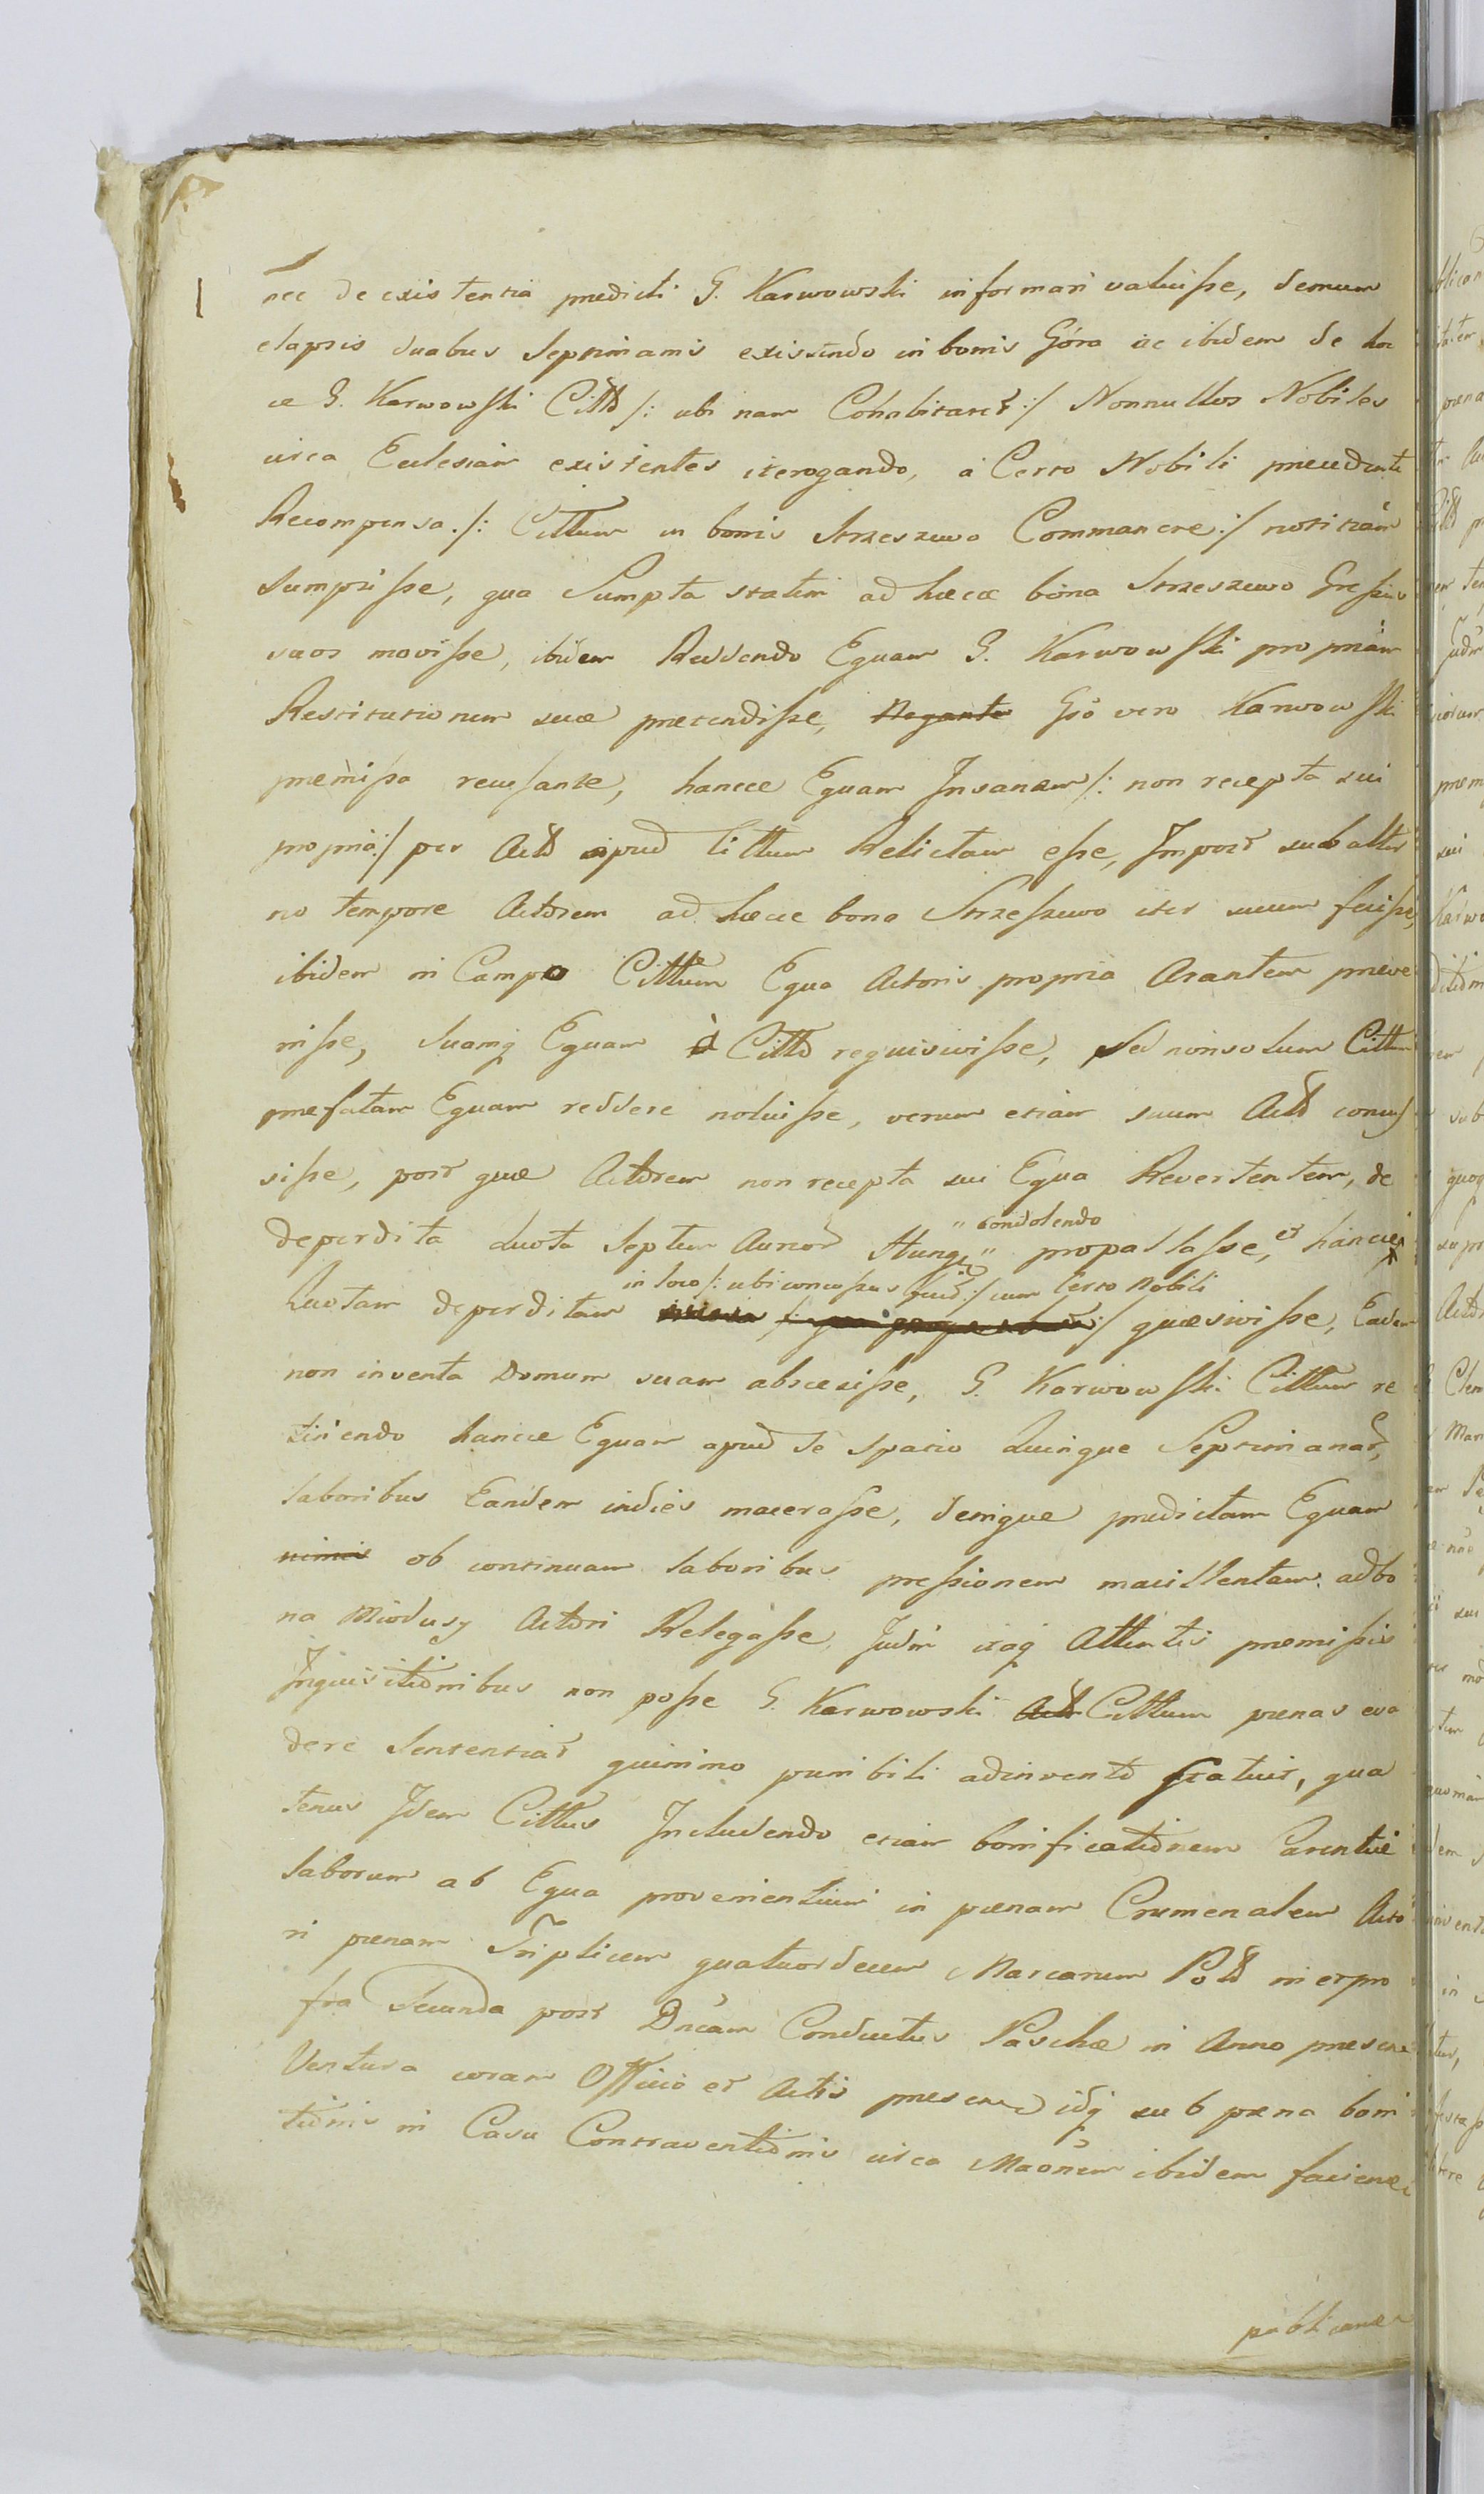 nec de existentia predicti G. Karwowski informari valuisse, demum
elapsis duabus Septimanis existendo in bonis Góra ac ibidem de hoc
ce G. Karwowski Citto /: ubi nam Cohabitaret :/ Nonnullos Nobiles
circa Ecclesiam existentes iterogando, à Certo Nobili precedente
Recompensa /: Cittum in bonis Strzeszewo Commanere :/ notitiam
Sumpsisse, qua Sumpta statim ad haece bona Strzeszewo Gressus
suos movisse, ibidem Reddendo Equam G. Karwowski propriam
Restitutionem suae pretendisse, Negante Gso vero Karwowski
premissa recusante, hancce Equam Insanam /: non recepta sui
propria :/ per Actō apud Cittum Relictam esse, Jmpost subalter
no tempore Actorem ad haece bona Strzeszewo iter suum fecisse,
ibidem in Campo Cittum Equa Actoris propria Arantem preve
nisse, Suamq Equam à Citto requisivisse, sed nonsolum Cittum
prefatam Equam reddere noluisse, verum etiam suum Actō concus
sisse, post quae Actorem non recepta sui Equa Revertentem, de
deperdita Quota Septem Aureor Hung " condolendo " propallasse, et hancce
in loco /: ubi concussus fuit :/ cum Certo Nobili
Quotam deperditam quaesivisse, Eadem
non inventa Domum suam abscessisse, G. Karwowski Cittum re
tinendo hancce Equam apud Se spatio Quinque Septimanar,
laboribus Eandem indies macerasse, denique predictam Equam
nimis ob continuam laboribus pressionem macillentam ad bo
na Miodusy Actori Relegasse, Judm itaq Attentis premissis
Jnquisitionibus non posse G. Karwowski Actō Cittum paenas eva
dere Sententiat quinimo punibili adinvento statuit, qua
tenus Jdem Cittus Jncludendo etiam bonificationem Carentiae
laborum ab Equa provenientium in paenam Crumenalem Acto
ri paenam Triplicem quatuordecem Marcarum Pol in et pro
fra Secunda post Dncam Conductus Paschae in Anno presen
Ventura coram Officio et Actis presen idq sub paena boni
tionis in Casu Contraventionis circa Maonem ibidem facien
publican